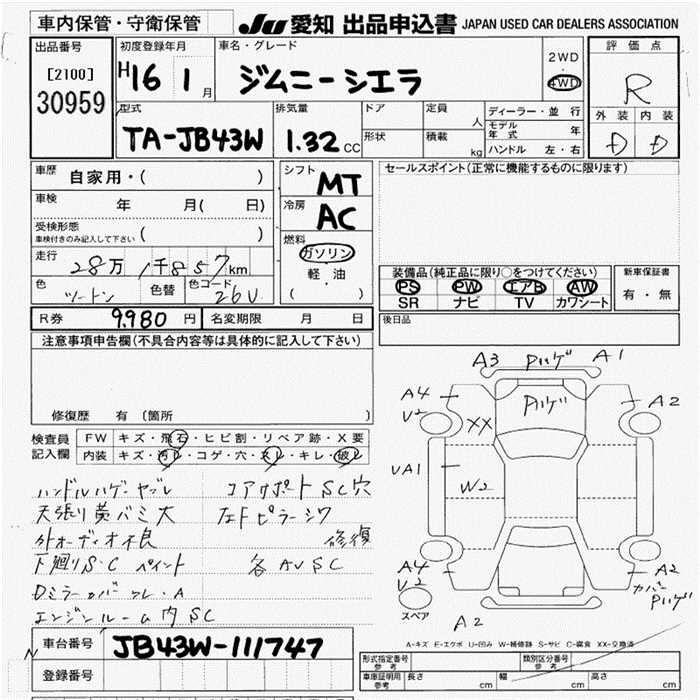 車内保管・守衛保管
JU 愛知 出品申込書 JAPAN USED CAR DEALERS ASSOCIATION
出品番号
[2100]
30959
初度登録年月
H16 1月
車名・グレード
ジムニーシエラ
2WD
・
4WD
評価点
R
外装 内装
D D
型式
TA-JB43W
排気量
1.32 CC
ドア
形状
定員 人
積載 kg
ディーラー・並行
モデル年式 年
ハンドル 左・右
車歴 自家用・( )
車検 年 月( 日)
受検形態
車検付きのみ記入して下さい ( )
走行 28万1千857km
色 ツートン 色替 色コード 26U
シフト MT
冷房 AC
燃料
ガソリン
軽・油
( )
セールスポイント(正常に機能するものに限ります)
装備品(純正品に限り○をつけてください)
PS PW エアB AW
SR ナビ TV カワシート
新車保証書
有・無
R券 9,980円 名変期限 月 日
後日品
注意事項申告欄(不具合内容等は具体的に記入して下さい)
修復歴 有 〔箇所 〕
検査員記入欄
FW キズ・飛石・ヒビ割・リペア跡・X要
内装 キズ・汚レ・コゲ・穴・スレ・キレ・破レ
ハンドルハゲ・ヤブレ コアサポートSC穴
天張り黄バミ大 左Fピラーシワ
外オーディオ不良 修復
下廻りS・C ペイント 各AUSC
Dミラーカバークレ・A
エンジンルーム内SC
車台番号 JB43W-111747
登録番号
A3 Pハゲ A1
A4
U2
XX
Pハゲ
A2
UA1
W2
A4
U2
スペア
A2
A2
カバーPハゲ
A-キズ E-エクボ U-凹み W-補修跡 S-サビ C-腐食 XX-交換済
形式指定番号 参考
類別区分番号 参考
車庫証明用 参考 長さ cm 幅 cm 高さ cm